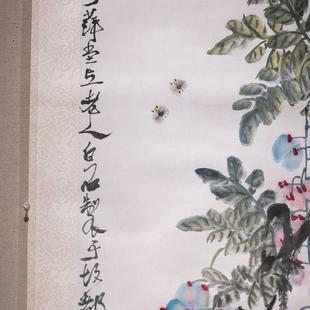 堂上老人白石製于故都